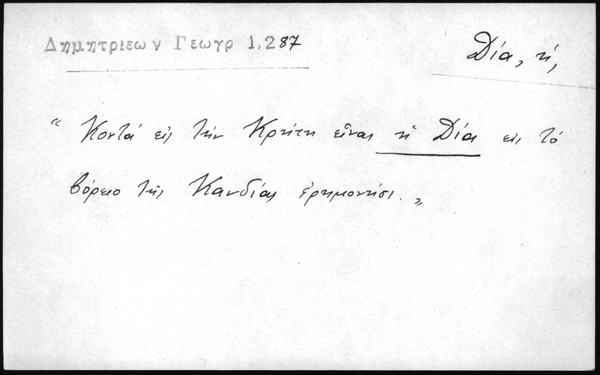 Δημητριεων Γεωγρ 1,287
Δία, ἡ,
“ Κοντά εἰς τήν Κρήτη εἶναι ἡ Δία εἰς τό
βόρειο τῆς Κανδίας ἐρημονήσι. „